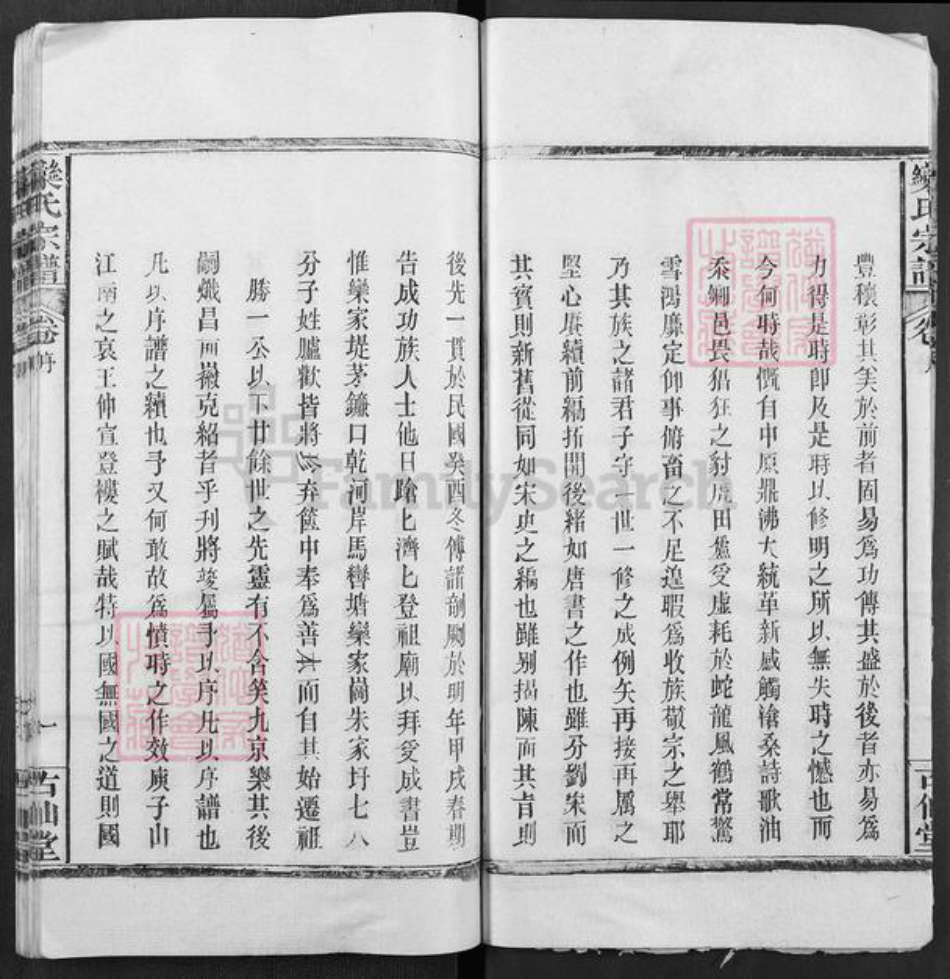 欒氏宗譜
卷
序
古仙堂
豐穰彰其美於前者固易爲功傳其盛於後者亦易爲
力得是時卽及是時以修明之所以無失時之憾也而
今何時哉慨自中原鼎沸大統革新感觸滄桑詩歌油
黍鄉邑畏猖狂之豺虎田廬受虛耗於蛇龍風鶴常驚
雪鴻靡定仰事俯畜之不足遑暇爲收族敬宗之舉耶
乃其族之諸君子守一世一修之成例矢再接再厲之
堅心賡續前編拓開後緒如唐書之作也雖分劉宋而
其實則新舊從同如宋史之編也雖别揭陳而其旨則
後先一貫於民國癸酉冬傅諸剞劂於明年甲戌春期
告成功族人士他日蹌匕濟匕登祖廟以拜受成書豈
惟欒家堤茅鐮口乾河岸馬轡塘欒家崗朱家圩七八
分子姓臚歡皆將珍弆篋中奉爲善本而自其始遷祖
勝一公以下廿餘世之先靈有不含笑九京欒其後
嗣熾昌而徽克紹者乎刋將竣屬予以序凡以序譜也
凡以序譜之續也予又何敢故爲憤時之作效庾子山
江南之哀王仲宣登樓之賦哉特以國無國之道則國
欒氏宗譜
卷
序
一
古仙堂
FamilySearch